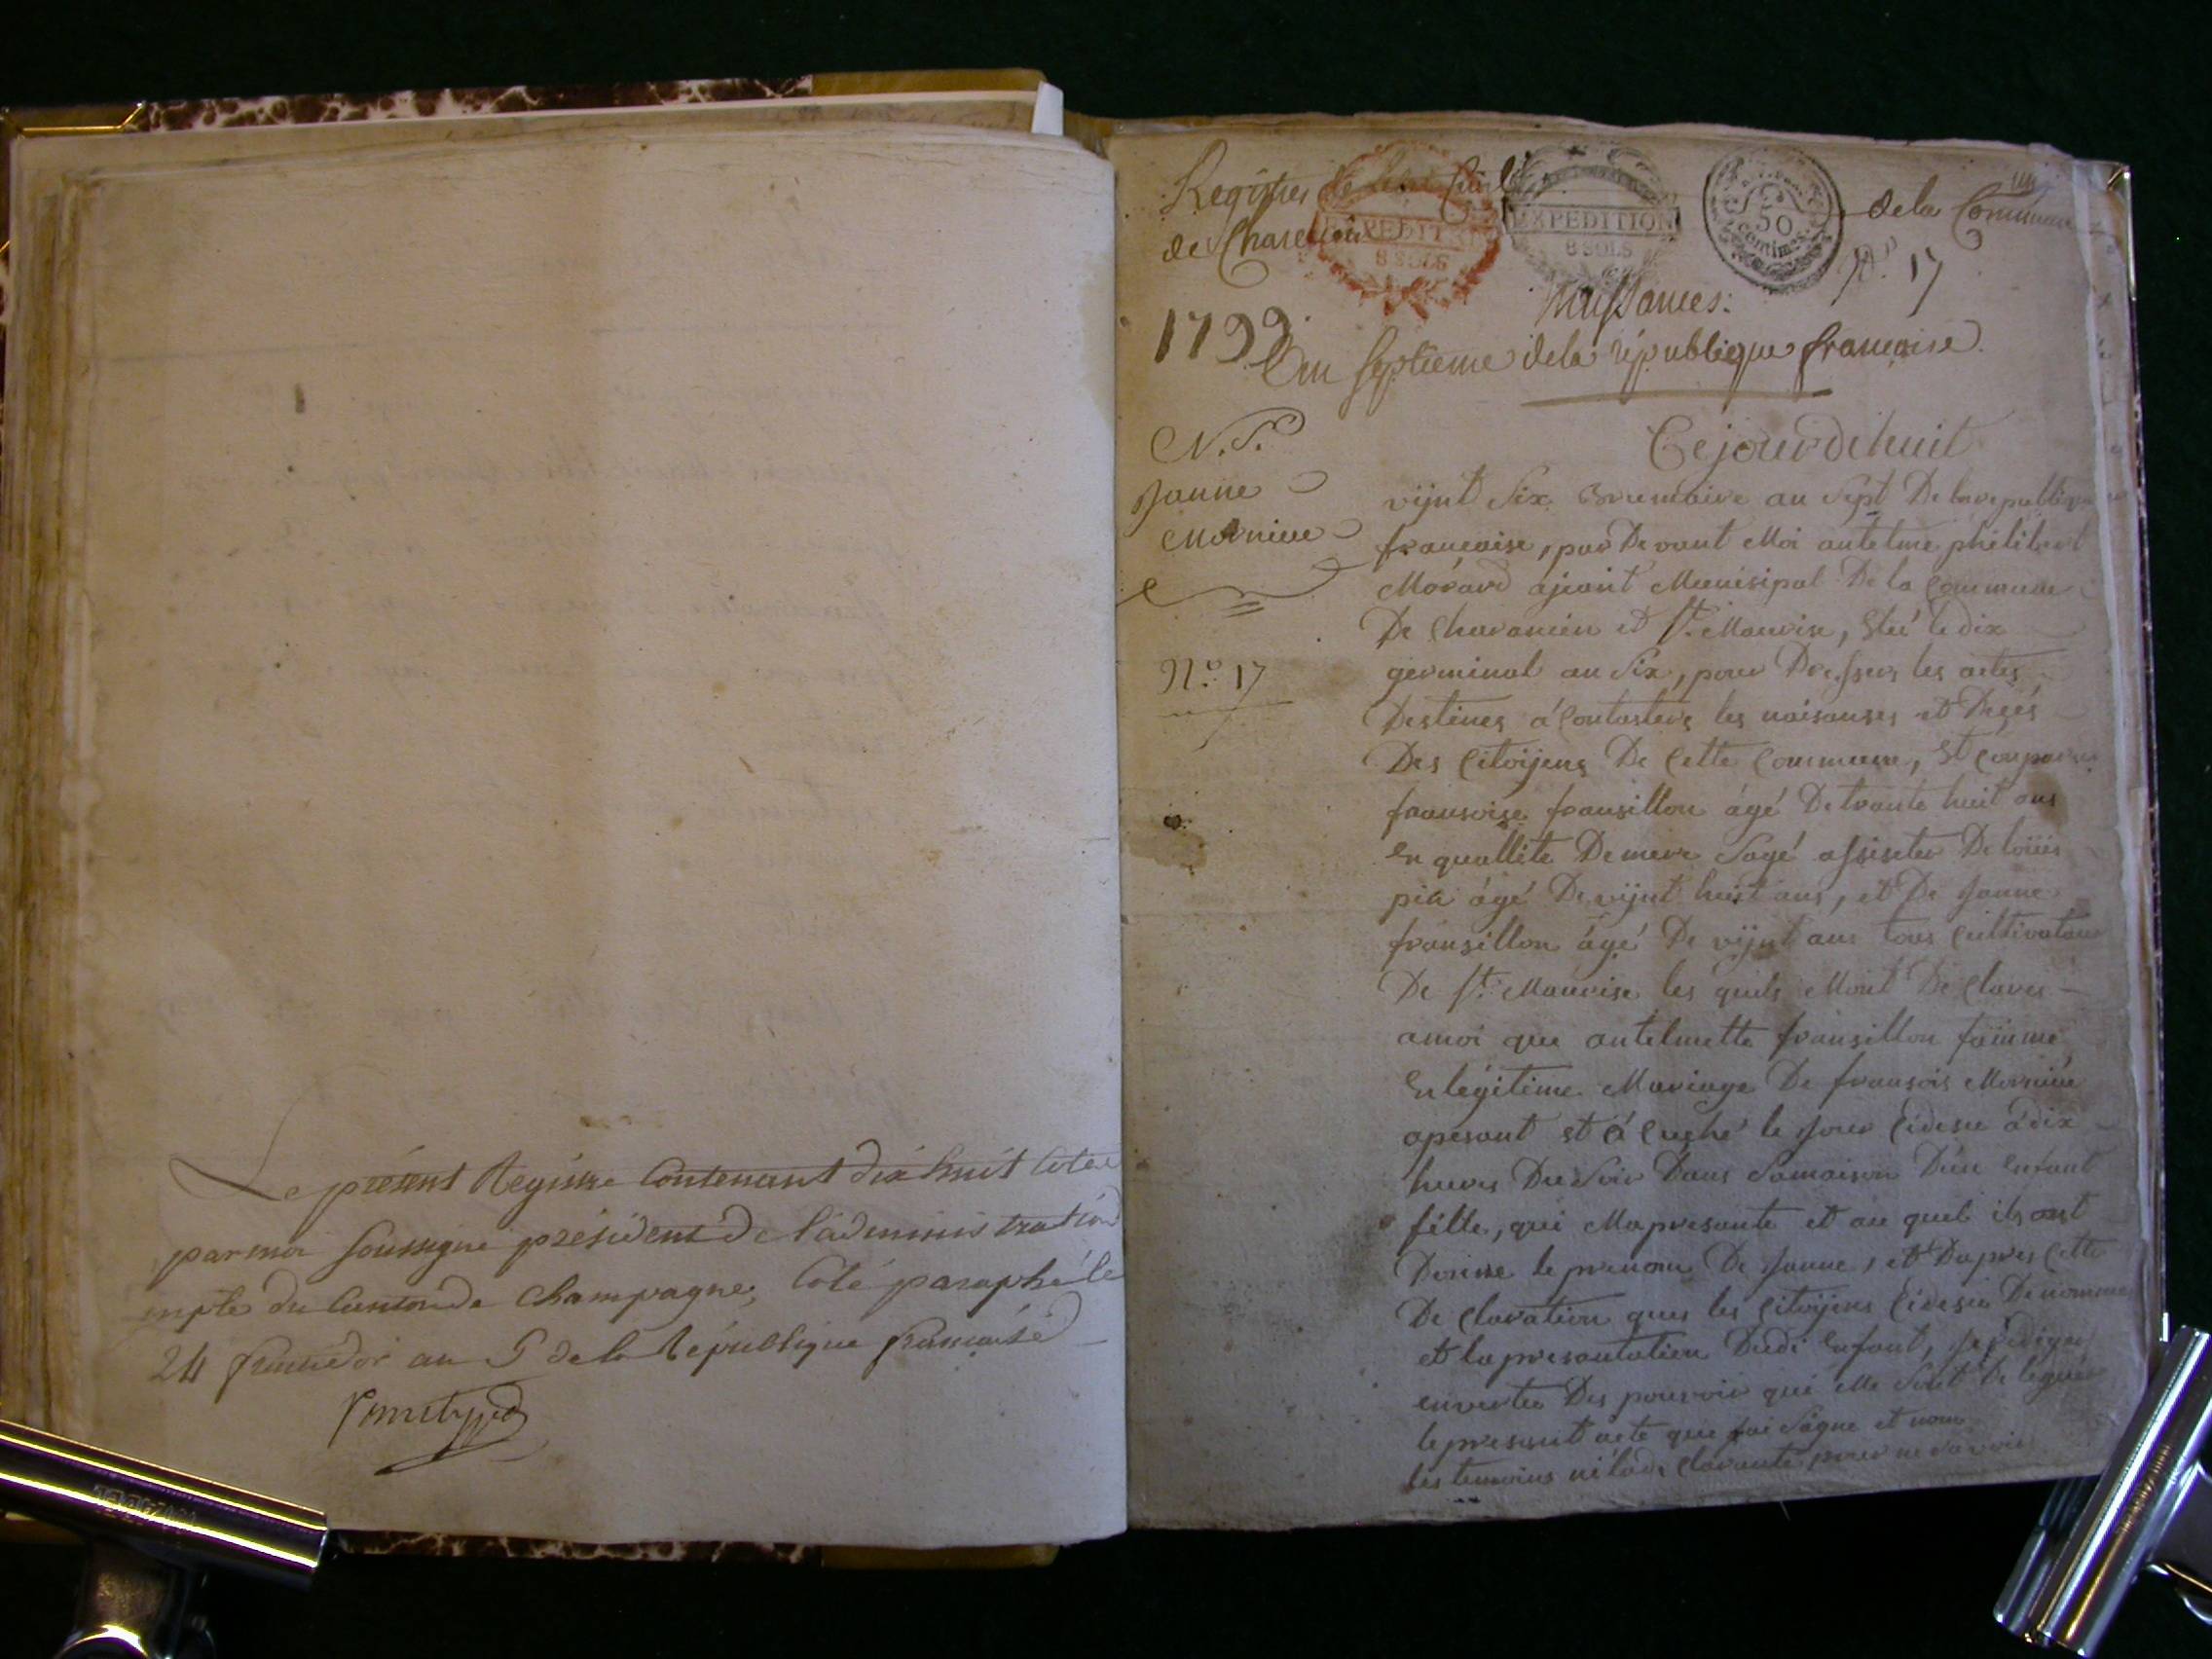 Le présent Registre Contenant dix huit Cotés
par moi soussigné président de l'administration
mple du Canton de Champagne, Coté paraphé le
24 frimedor an 5 de la République française
Registres de Létat Civil de la Commune
de Charencin
EXPEDITION
8 SOLS
EXPEDITION
8 SOLS
50
centimes
No. 17
Naissances:
1799.
an septieme de la république française.
N.S.
Janne
Morniue
No. 17
Ce jourdehuit
vijnt six Brumaire an sept De la republique
francaise, par Devant Moi antelme philibert
Morard ajeant Munisipal De la Commune
De Charancin et St. Maurise, Eleu le dix
germinal an Six, pour Dresser les actes
Destines á Contaster les naisanses et Desés
Des Citoijens De Cette Commune, Et Conparu
fransoise fransillon ágé De trante huit ans
En quallité De mere Sagé assister De loüis
pia ágé De vijnt huit ans, et De Janne
fransillon ágé De vijnt ans tous Cultivateur
De St. Mauvise les quels Mont De Clarer
amoi que antelmette fransillon fámme
En légitime Mariage De fransois Morniue
apesant Et á Cuché le Jour Cidesu á dix
heures Du Soir Dans Samaison Dún Enfant
fille, qui Ma presanté et au quel ils ont
Donne le prenom De Janne, et Dapres Cette
De Claration ques les Citoijens Cidesu Denommes
et la presantation Dudi Enfant, je rediger
en vertu Des pouvoir qui Me Sont De legués
le presant acte que jai Signe et nom
les temoins ni lade Clarante pour ne savoir